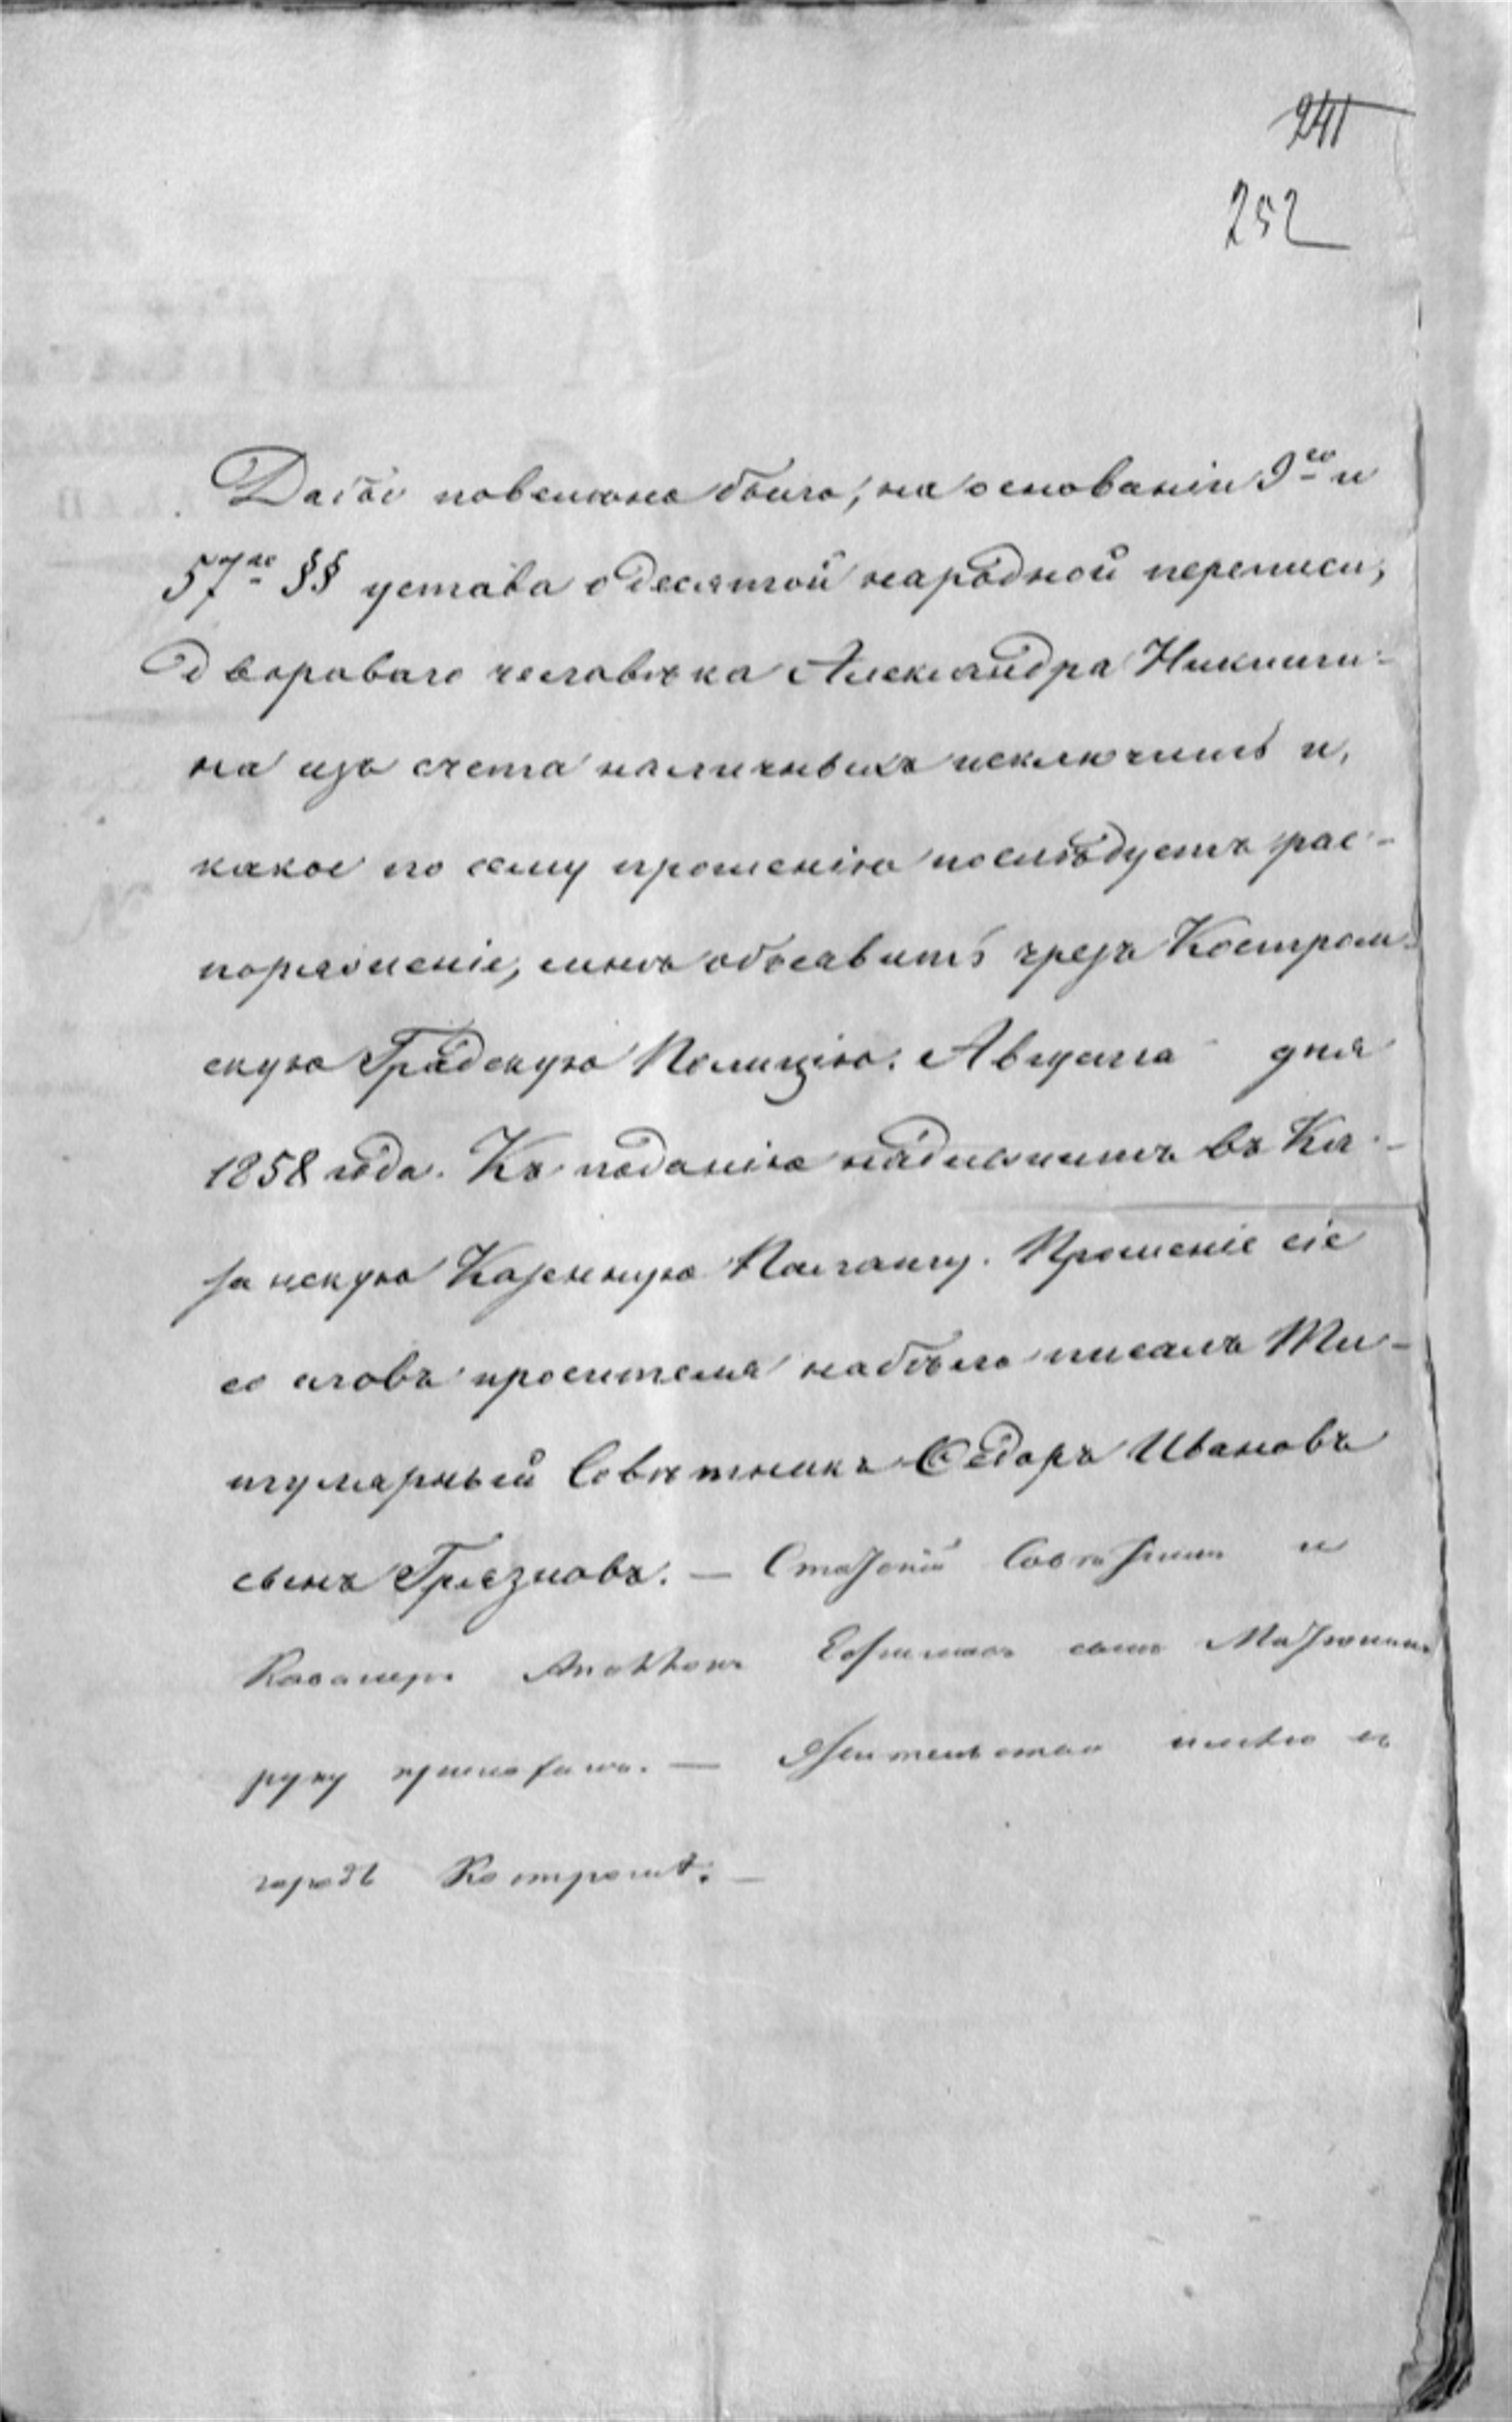 241
252
Дабы повелено было, на основаніи 9го и
57го §§ устава о десятой народной переписи,
двороваго человѣка Александра Никити-
на изъ счета наличныхъ исключить и,
какое по сему прошенію послѣдуетъ рас-
поряженіе, мнѣ объявить чрезъ Костром-
скую Градскую Полицію. Августа дня
1858 года. Къ поданію надлежитъ въ Ка-
занскую Казенную Палату. Прошеніе сіе
со словъ просителя набѣло писалъ Ти-
тулярный Совѣтникъ Ѳедоръ Ивановъ
сынъ Грязновъ. — Статскій Совѣтникъ и
Кавалеръ сынъ
руку приложилъ. — Жительство имѣю въ
городѣ Костромѣ. —